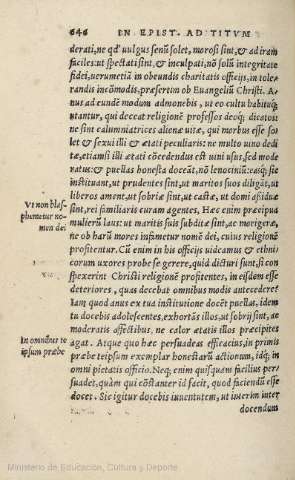 646 IN EPIST. AD TITVM
derati, ne qd' uulgus senū solet, morosi sint, & ad iram
faciles: ut spectati sint, & inculpati, nō solū integritate
fidei, uerumetiā in obeundis charitatis officijs, in tole‑
randis incōmodis, præsertim ob Euangeliū Christi. A‑
nus ad eundē modum admonebis, ut eo cultu habituq́;
utantur, qui deceat religionē professos decq́; dicatos
ne sint calumniatrices alienæ uitæ, qui morbus esse so‑
let & sexui illi & ætati peculiaris: ne multo uino dedi‑
tæ, etiamsi illi ætati cōcedendus est uini usus, sed mode
ratus: & puellas honesta doceāt, nō lenociniū: easq́; sic
instituant, ut prudentes sint, ut maritos suos diligāt, ut
liberos ament, ut sobriæ sint, ut castæ, ut domi assiduæ
sint, rei familiaris curam agentes. Hæc enim præcipua
mulierū laus: ut maritis suis subditæ sint, ac morigeræ,
ne ob harū mores infametur nomē dei, cuius religionē
profitentur. Cū enim in his officijs uideamus & ethni‑
corum uxores probe se gerere, quid dicturi sunt, si con
spexerint Christi religionē profitentes, in eisdem esse
deteriores, quas decebat omnibus modis antecedere?
Iam quod anus ex tua institutione docēt puellas, idem
tu docebis adolescentes, exhortās illos, ut sobrij sint, ac
moderatis affectibus, ne calor ætatis illos præcipites
agat. Atque quo hæc persuadeas efficaciùs, in primis
præbe teipsum exemplar honestarū actionum, idq́; in
omni pietatis officio. Neq́; enim quisquam facilius per
suadet, quàm qui cōstanter id facit, quod faciendū esse
docet. Sic igitur docebis iuuentutem, ut interim inter
docendum
Vt non blas‑
phemetur no‑
men dei
In omnibus te
ipsum præbe
Ministerio de Educación, Cultura y Deporte